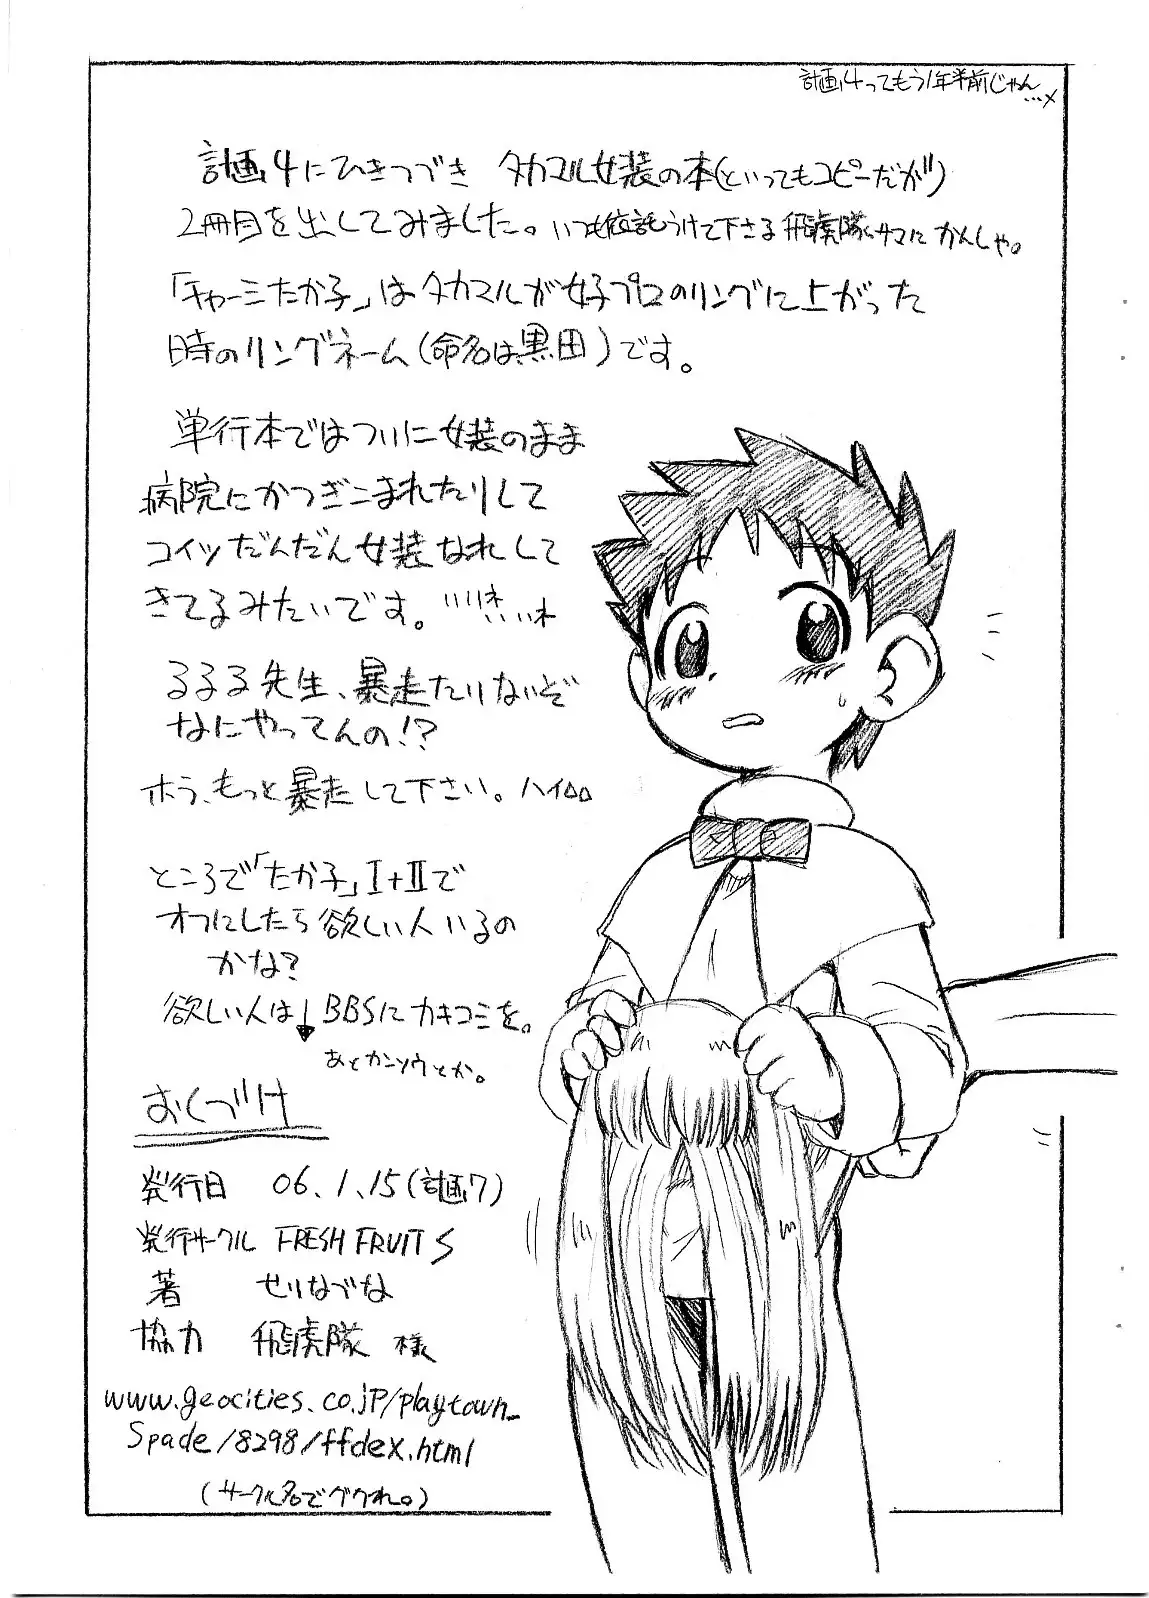 計画4ってもう1年半前じゃん
…×
計画4にひきつづき タカマル女装の本(といってもコピーだが)
2冊目を出してみました。いつも委託うけて下さる飛虎隊サマにかんしゃ。
「チャーミたか子」はタカマルが女子プロのリングに上がった
時のリングネーム(命名は黒田)です。
単行本ではついに女装のまま
病院にかつぎこまれたりして
コイツだんだん女装なれして
きてるみたいです。
るるる先生、暴走たりないぞ
なにやってんの!?
ホラ、もっと暴走して下さい。ハイ
ところで「たか子」I+IIで
オフにしたら欲しい人いるの
かな?
欲しい人は↓BBSにカキコミを。
あとカンソウとか。
おくづけ
発行日 06.1.15(計画7)
発行サークル FRESH FRUITS
著 せりなずな
協力 飛虎隊 様
www.geocities.co.jp/playtown_
Spade/8298/ffdex.html
(サークル名でググれ。)